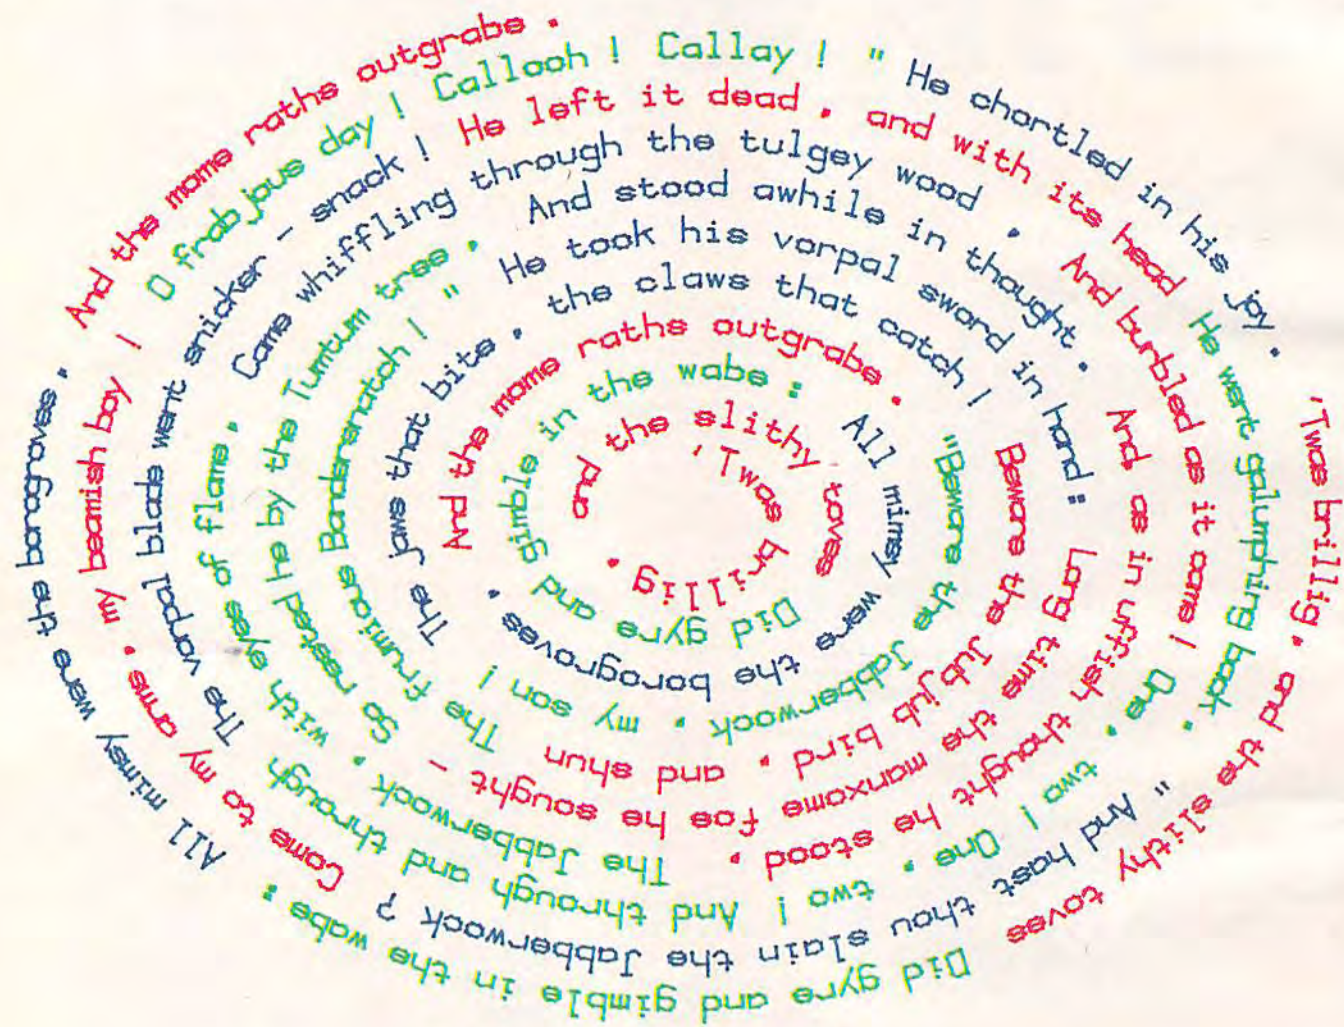 'Twas brillig, and the slithy toves
Did gyre and gimble in the wabe:
All mimsy were the borogoves,
And the mome raths outgrabe.
"Beware the Jabberwock, my son!
The jaws that bite, the claws that catch!
Beware the Jubjub bird, and shun
The frumious Bandersnatch!"
He took his vorpal sword in hand:
Long time the manxome foe he sought -
So rested he by the Tumtum tree,
And stood awhile in thought.
And, as in uffish thought he stood,
The Jabberwock, with eyes of flame,
Came whiffling through the tulgey wood,
And burbled as it came!
One, two! One, two! And through and through
The vorpal blade went snicker - snack!
He left it dead, and with its head
He went galumphing back.
"And hast thou slain the Jabberwock?
Come to my arms, my beamish boy!
O frabjous day! Callooh! Callay!"
He chortled in his joy.
'Twas brillig, and the slithy toves
Did gyre and gimble in the wabe:
All mimsy were the borogroves,
And the mome raths outgrabe.